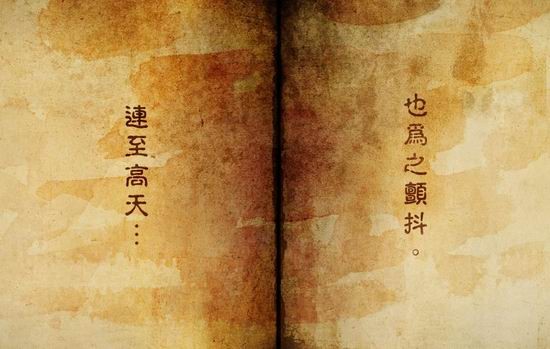 連至高天…
也爲之顫抖。